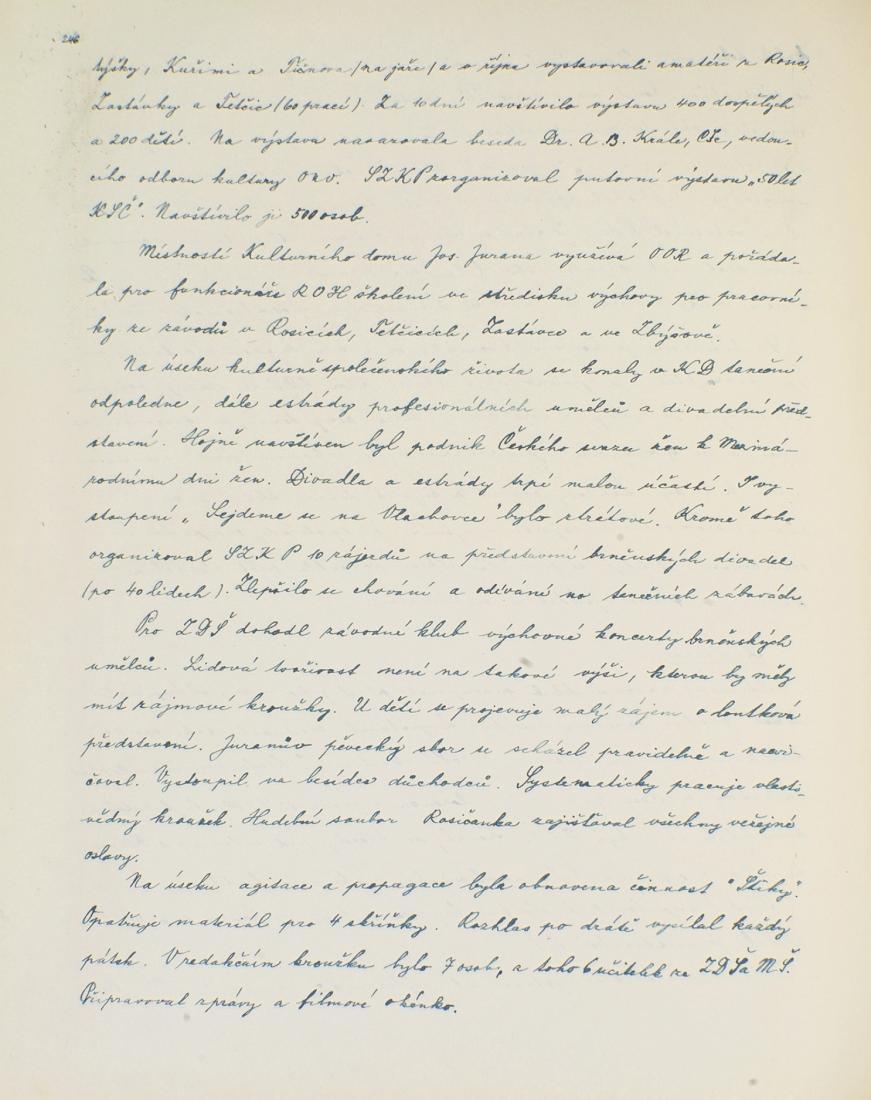 246
týšky, Kuřimi a Tišnova /na jaře/ a v říjnu vystavovali amatéři z Rosic,
Zastávky a Tetčic (60 prací). Za 10 dní navštívilo výstavu 400 dospělých
a 200 dětí. Na výstavu navazovala beseda Dr. A. B. Krále, CSc, vedou-
cího odboru kultury ONV. SZKP zorganizoval putovní výstavu „50 let
KSČ". Navštívilo ji 500 osob.
Místností Kulturního domu Jos. Jurana využívá OOR a pořáda-
la pro funkcionáře ROH školení ve středisku výchovy pro pracovní-
ky ze závodů v Rosicích, Tetčicích, Zastávce a ve Zbýšově.
Na úseku kulturně společenského života se konaly v KD taneční
odpoledne, dále estrády profesionálních umělců a divadelní před-
stavení. Hojně navštíven byl podnik Českého svazu žen k Meziná-
rodnímu dni žen. Divadla a estrády trpí malou účastí. I vy-
stoupení „Sejdeme se na Vlachovce" bylo ztrátové. Kromě toho
organizoval SZKP 10 zájezdů na představení brněnských divadel
(po 40 lidech). Zlepšilo se chování a odívání na tanečních zábavách.
Pro ZDŠ dohodl závodní klub výchovné koncerty brněnských
umělců. Lidová tvořivost není na takové výši, kterou by měly
mít zájmové kroužky. U dětí se projevuje malý zájem o loutková
představení. Juranův pěvecký sbor se scházel pravidelně a nacvi-
čoval. Vystoupil na besídce důchodců. Systematicky pracuje vlasti-
vědný kroužek. Hudební soubor Rosičanka zajišťoval všechny veřejné
oslavy.
Na úseku agitace a propagace byla obnovena činnost "Štiky".
Opatřuje materiál pro 4 skříňky. Rozhlas po drátě vysílal každý
pátek. V redakčním kroužku bylo 7 osob, z toho 6 učitelek ze ZDŠ a MŠ.
Připravoval zprávy a filmové okénko.